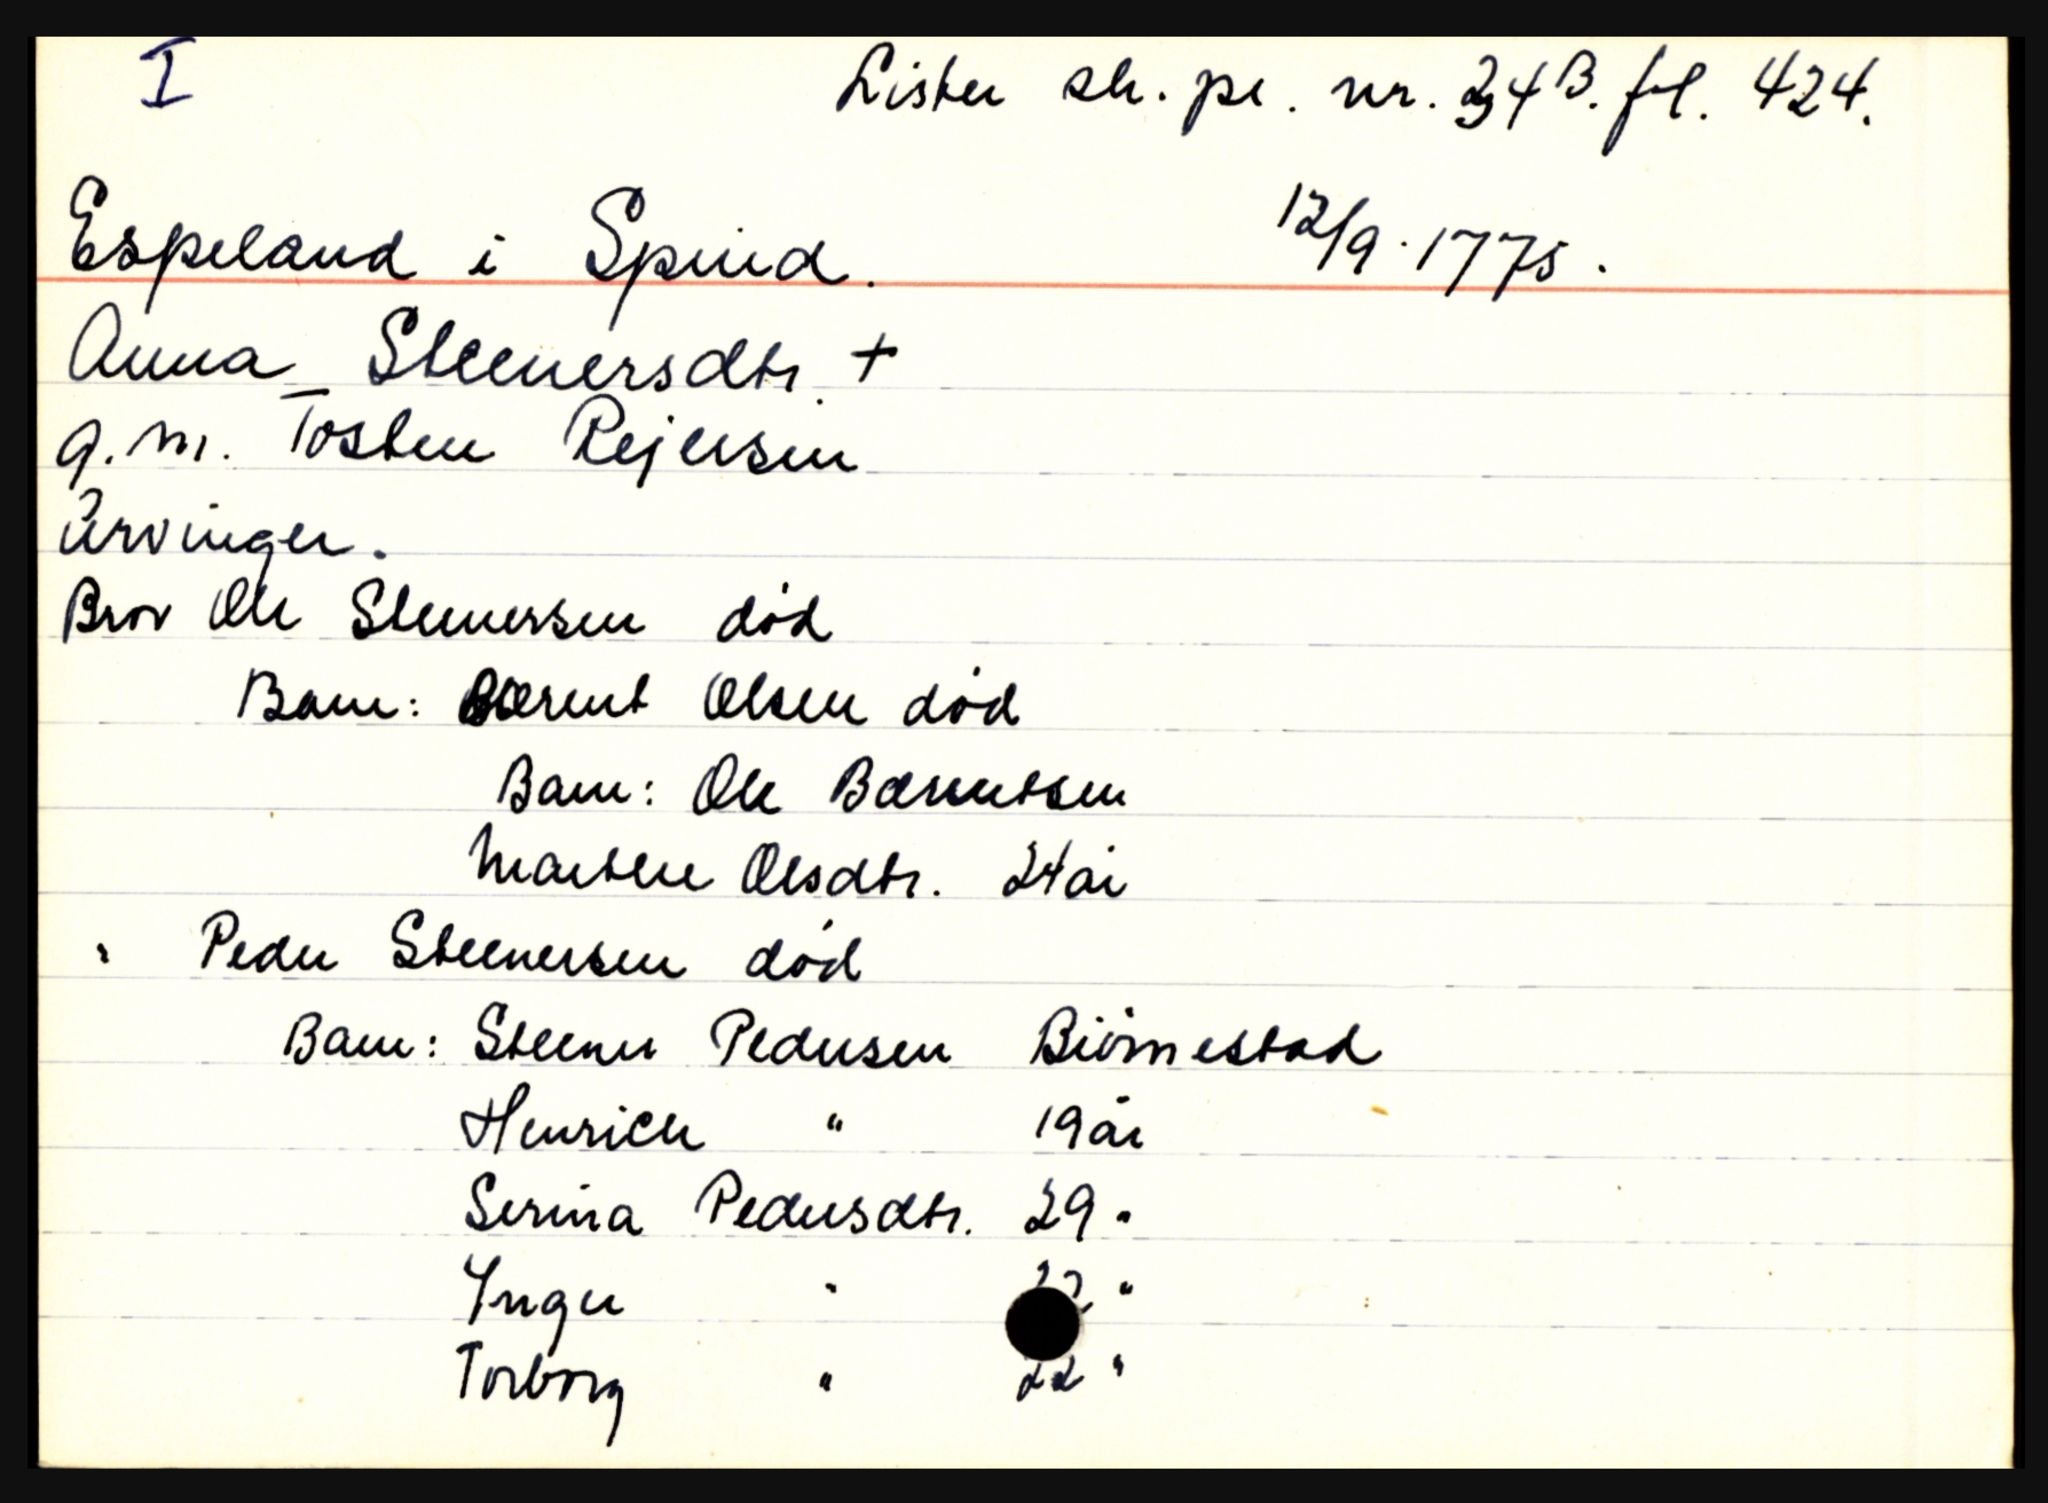 I
Lister sk. pr. nr. 34 B. fol. 424.
Espeland i Spind. 12/9. 1775.
Anna Steenersdtr. +
g. m. Tosten Rejersen
Arvinger.
Bror Ole Steenersen död
Barn: Bærent Olsen död
Barn: Ole Bærentsen
Marthe Olsdtr. 24 år
" Peder Steenersen död
Barn: Steener Pedersen Biörnestad
Henrich " 19 år
Serina Pedersdtr. 29 "
Ynger " "
Torborg " 22 "